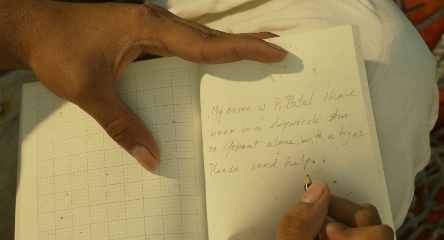 My name is Pi Patel I have
been in a shipwreck. I am
on lifeboat alone, with a tiger.
Please send help.